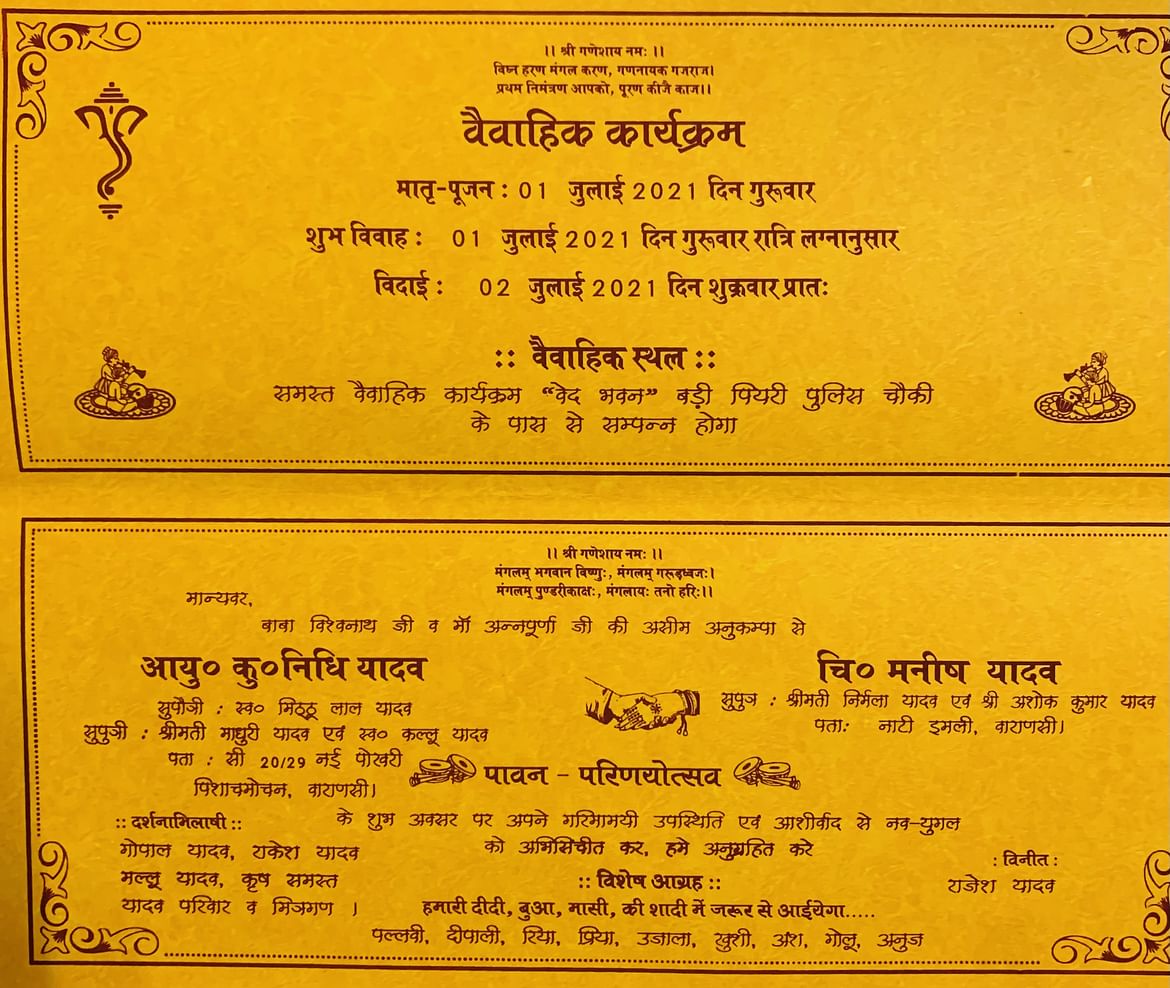 ।। श्री गणेशाय नमः ।।
विघ्न हरण मंगल करण, गणनायक गजराज।
प्रथम निमंत्रण आपको, पूरण कीजै काज।।
वैवाहिक कार्यक्रम
मातृ-पूजन : 01 जुलाई 2021 दिन गुरूवार
शुभ विवाह : 01 जुलाई 2021 दिन गुरूवार रात्रि लग्नानुसार
विदाई : 02 जुलाई 2021 दिन शुक्रवार प्रातः
:: वैवाहिक स्थल ::
समस्त वैवाहिक कार्यक्रम “वेद भवन” बड़ी पियरी पुलिस चौकी
के पास से सम्पन्न होगा
।। श्री गणेशाय नमः ।।
मंगलम् भगवान विष्णुः, मंगलम् गरूड़ध्वजः।
मंगलम् पुण्डरीकाक्षः, मंगलायः तनो हरिः।।
मान्यवर,
बाबा विश्वनाथ जी व माँ अन्नपूर्णा जी की असीम अनुकम्पा से
आयु० कु०निधि यादव
सुपौत्री : स्व० मिठ्ठू लाल यादव
सुपुत्री : श्रीमती माधुरी यादव एवं स्व० कल्लू यादव
पता : सी 20/29 नई पोखरी
पिशाचमोचन, वाराणसी।
चि० मनीष यादव
सुपुत्र : श्रीमती निर्मला यादव एवं श्री अशोक कुमार यादव
पताः नाटी इमली, वाराणसी।
पावन - परिणयोत्सव
के शुभ अवसर पर अपने गरिमामयी उपस्थिति एवं आशीर्वाद से नव-युगल
को अभिसिंचीत कर, हमे अनुग्रहित करे
:: दर्शनाभिलाषी ::
गोपाल यादव, राकेश यादव
मल्लू यादव, कृष समस्त
यादव परिवार व मित्रगण ।
:: विशेष आग्रह ::
हमारी दीदी, बुआ, मासी, की शादी में जरूर से आईयेगा.....
पल्लवी, दीपाली, रिया, प्रिया, उजाला, खुशी, अंश, गोलू, अनुज
: विनीत :
राजेश यादव